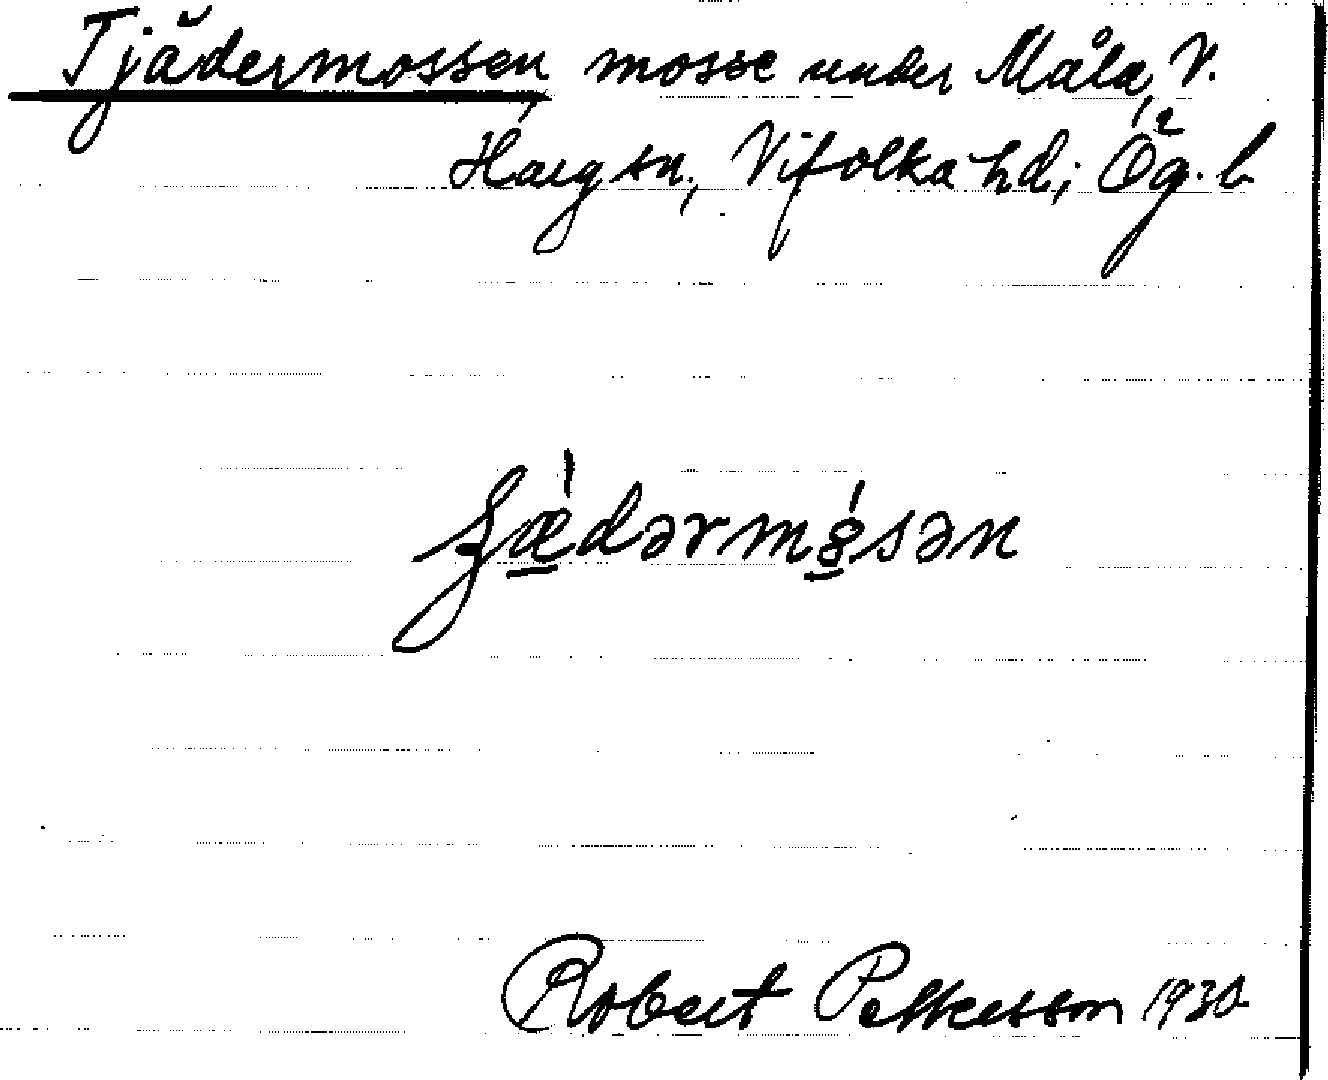 Tjädermossen mosse under Måla, V.
Harg sn., Vifolka hd; Ög. l.
Robert Pettersson 1930